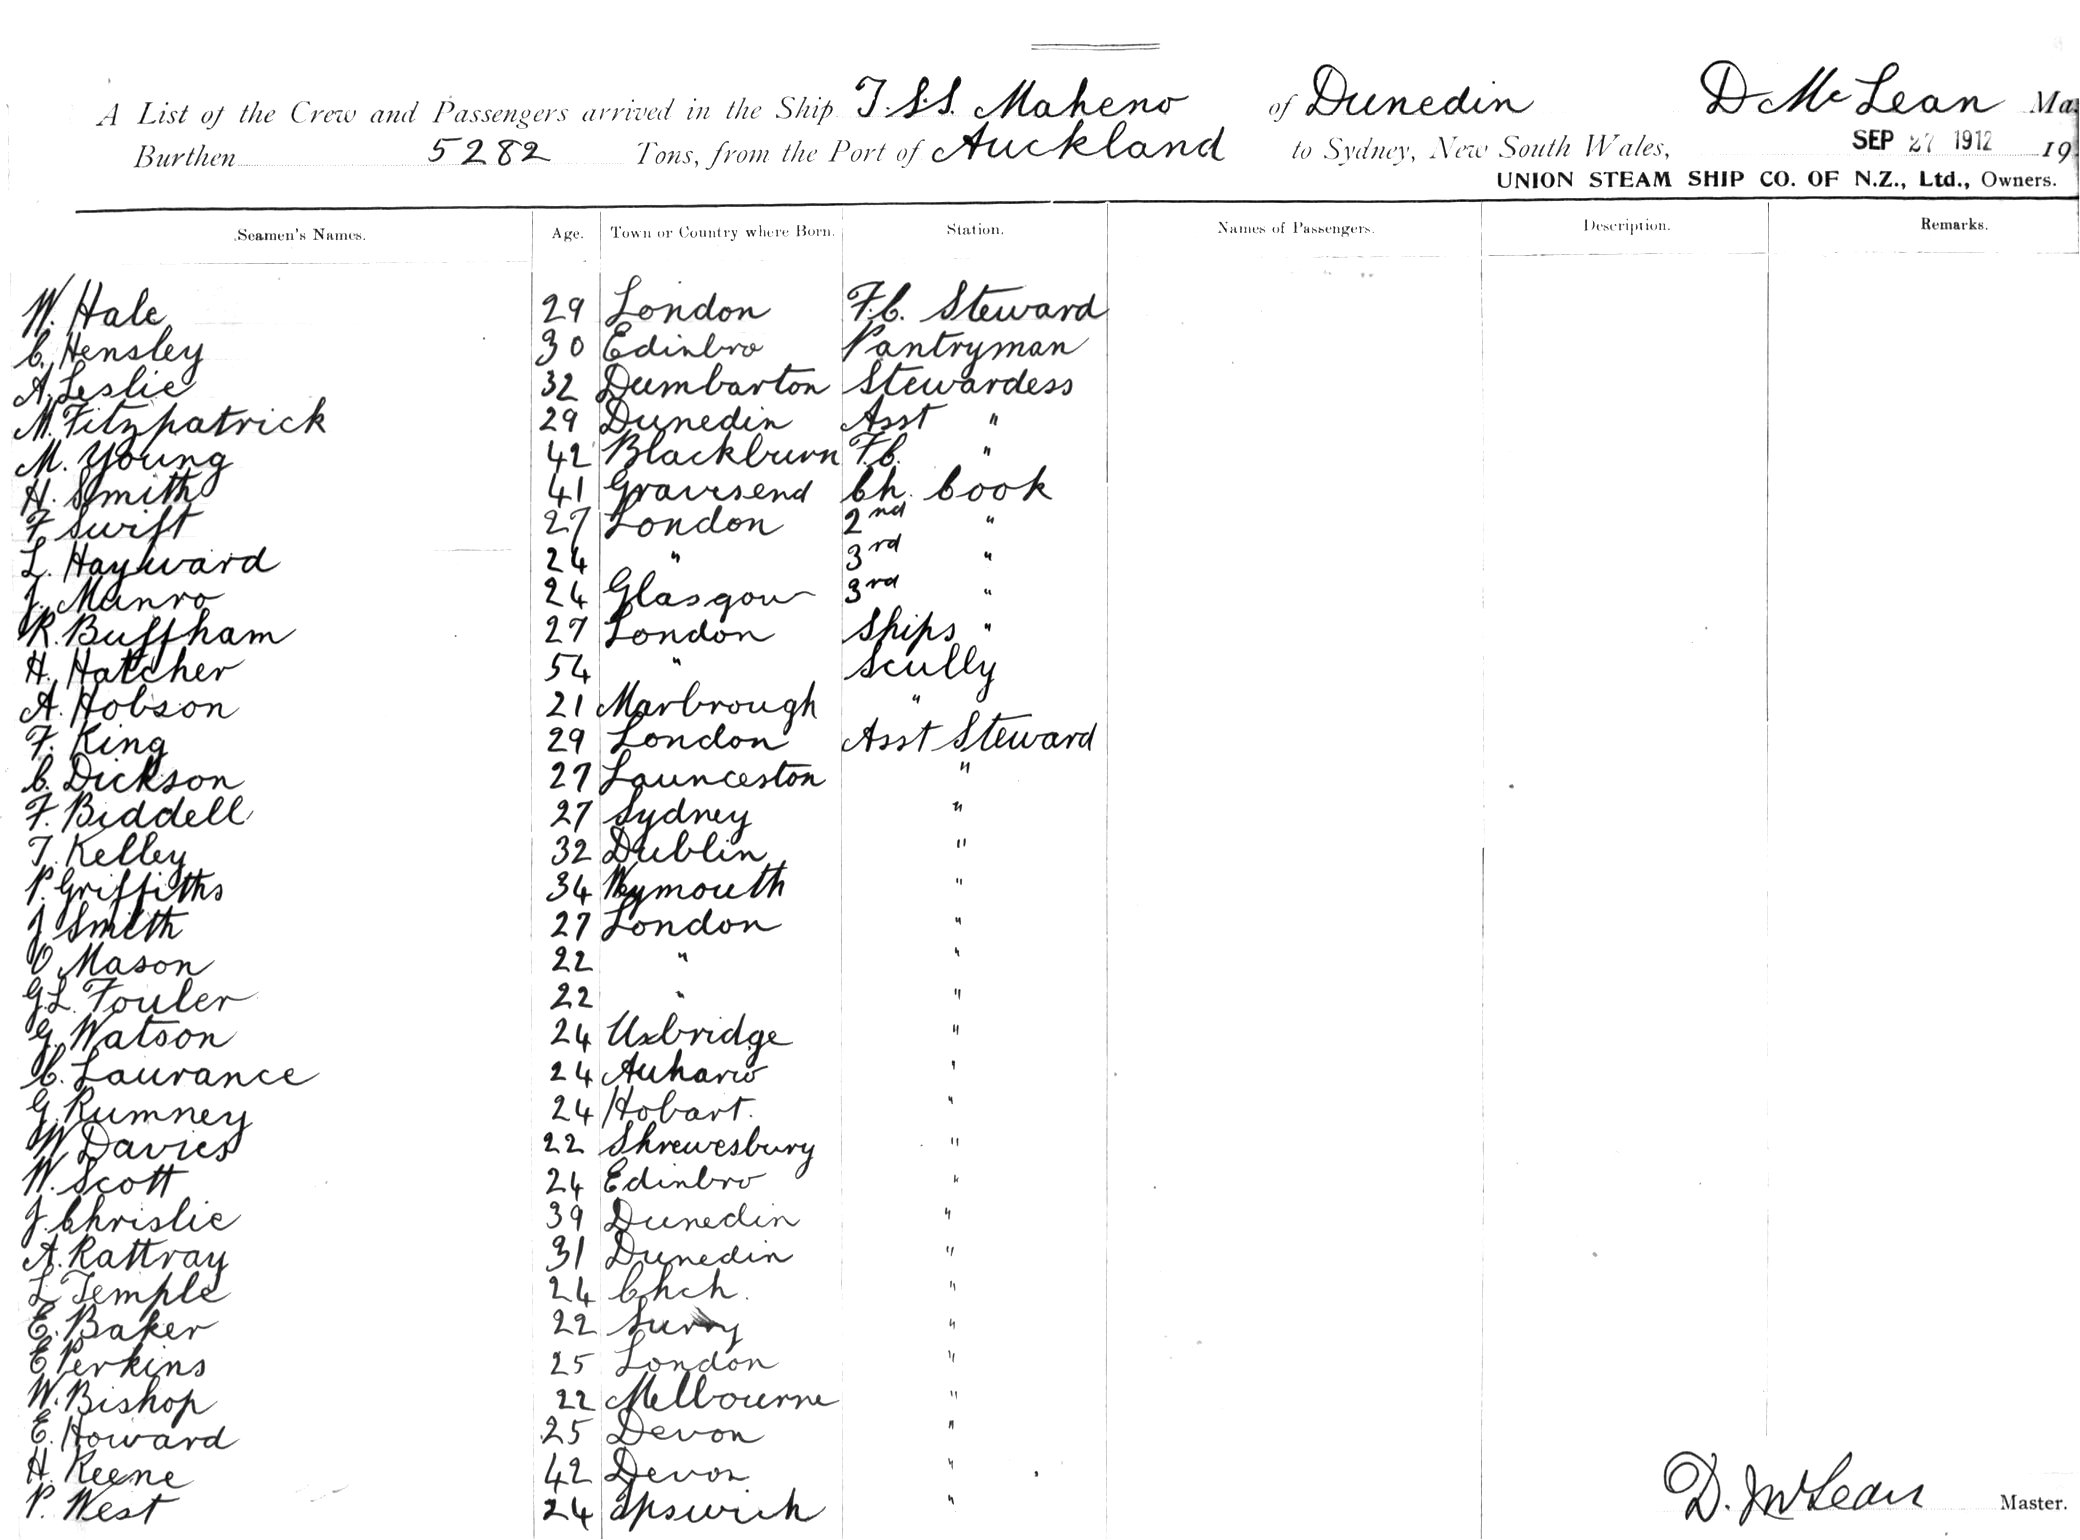 A List of the Crew and Passengers arrived in the Ship T.S.S. Maheno of Dunedin D McLean Ma
Burthen 5282 Tons, from the Port of Auckland to Sydney, New South Wales, SEP 27 1912 19
UNION STEAM SHIP CO. OF N.Z., Ltd., Owners.
Seamen's Names. Age. Town or Country where Born. Station. Names of Passengers. Description. Remarks.
W. Hale 29 London F.C. Steward
C. Hensley 30 Edinbro Pantryman
A. Leslie 32 Dumbarton Stewardess
M. Fitzpatrick 29 Dunedin Asst "
M. Young 42 Blackburn F.C. "
H. Smith 41 Gravesend Ch. Cook
F Swift 27 London 2nd "
L. Hayward 24 " 3rd "
J. Munro 24 Glasgow 3rd "
R. Buffham 27 London Ships "
H. Hatcher 54 " Scully
A. Hobson 21 Marbrough "
F. King 29 London Asst Steward
C. Dickson 27 Launceston "
F. Biddell 27 Sydney "
T. Kelley 32 Dublin "
P. Griffiths 34 Weymouth "
J Smith 27 London "
O Mason 22 " "
G.L. Fouler 22 " "
G. Watson 24 Uxbridge "
C. Laurance 24 "
G. Rumney 24 Hobart. "
W Davies 22 Shrewesbury "
W. Scott 24 Edinbro "
J. Christie 39 Dunedin "
A. Rattray 31 Dunedin "
L Temple 24 Chch. "
E. Baker 22 Surry "
E Perkins 25 London "
W. Bishop 22 Melbourne "
E. Howard 25 Devon "
H. Keene 42 Devon "
P. West 24 Ipswich "
D. McLean Master.